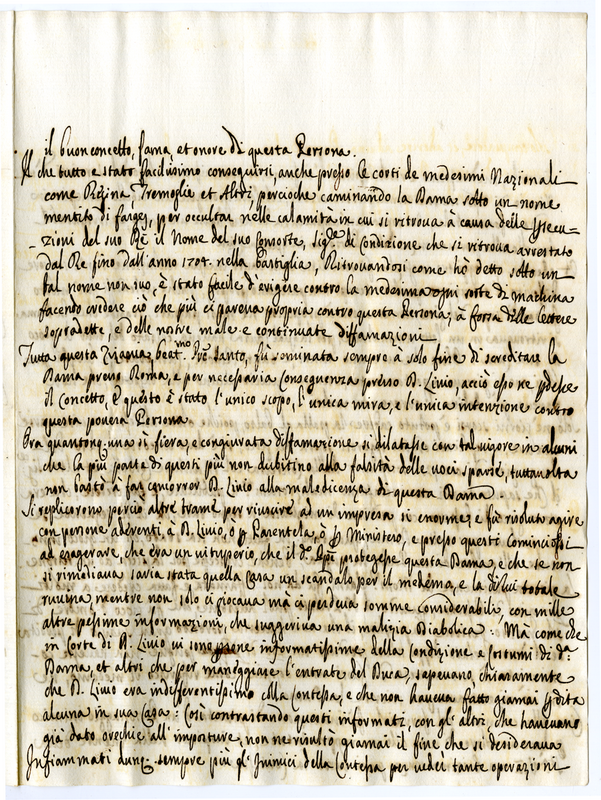 il buon concetto, fama, et onore di questa Persona.
Il che tutto è stato facilissimo conseguirsi, anche presso le corti de medesimi Nazionali
come Regina, Tremoglie et Altri percioche caminando la Dama sotto un nome
mentito di farges, per occultar nelle calamità in cui si ritroua à causa delle Persecu-
-zioni del suo Rè il Nome del suo Consorte, sig.re di Condizione che si ritroua arrestato
dal Re fino dall'anno 1704. nella bastiglia, Ritrouandosi come hò detto sotto un
tal nome non suo, è stato facile d'erigere contro la medesima ogni sorte di machina
facendo credere ciò che più ci pareua propria contro questa Persona, à forza delle lettere
sopradette, e delle nostre male e continuate diffamazioni
Tutta questa Zizania, beat.mo Pre santo, fù seminata sempre à solo fine di screditare la
Dama presso Roma, e per necessaria Conseguenza presso D. Liuio, acciò esso ne perdesse
il Concetto, e questo è stato l'unico scopo, l'unica mira, e l'unica intenzione contro
questa pouera Persona
Ora quantonq. una si fiera, e congiurata diffamazione si dilatasse con tal uigore in alcuni
che la più parte di questi più non dubitino alla falsità delle uoci sparse, tuttauolta
non bastò à far concorrer D. Liuio alla maledicenza di questa Dama.
Si replicorono perciò altre trame per riuscire ad un impresa si enorme, e fù risoluto agire
con persone aderenti, à D. Liuio, ò p Parentela, ò p Ministero, e presso questi Cominciossi
ad esagerare, che era un uituperio, che il d.o protegesse questa Dama, e che se non
si rimediaua saria stata quella Casa un scandalo per il medemo, e la di lui totale
ruuina, mentre non solo ci giocaua mà ci perdeua somme considerabili, con mille
altre pessime informazioni, che suggeriua una malizia Diabolica: Mà come che
in Corte di D. Liuio ui sono persone informatissime della Condizione e Costumi di d.a
Dama, et altri che per maneggiare l'entrate del Duca, sapeuano chiaramente
che D. Liuio era indifferentissimo colla Contessa, e che non haueua fatto giamai perdita
alcuna in sua Casa: Così contrastando questi informati, con gl'altri, che haueuano
già dato orechie all'imposture, non ne risultò giamai il fine che si desideraua
Infiammati dunq. sempre più gl'Inimici della Contessa per ueder tante operazioni